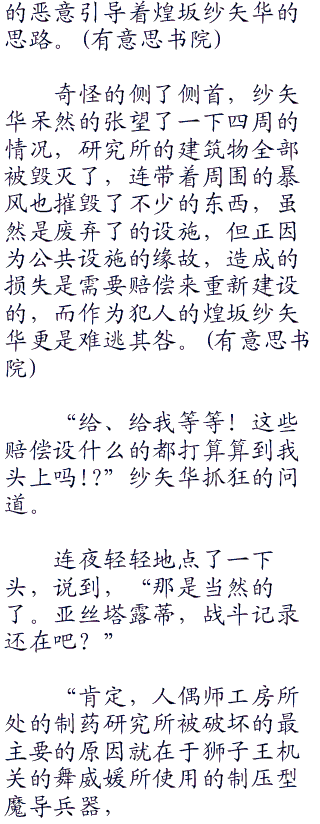 的恶意引导着煌坂纱矢华的
思路。(有意思书院)
奇怪的侧了侧首，纱矢
华呆然的张望了一下四周的
情况，研究所的建筑物全部
被毁灭了，连带着周围的暴
风也摧毁了不少的东西，虽
然是废弃了的设施，但正因
为公共设施的缘故，造成的
损失是需要赔偿来重新建设
的，而作为犯人的煌坂纱矢
华更是难逃其咎。(有意思书
院)
“给、给我等等！这些
赔偿设什么的都打算算到我
头上吗!?”纱矢华抓狂的问
道。
连夜轻轻地点了一下
头，说到，“那是当然的
了。亚丝塔露蒂，战斗记录
还在吧？”
“肯定，人偶师工房所
处的制药研究所被破坏的最
主要的原因就在于狮子王机
关的舞威媛所使用的制压型
魔导兵器，